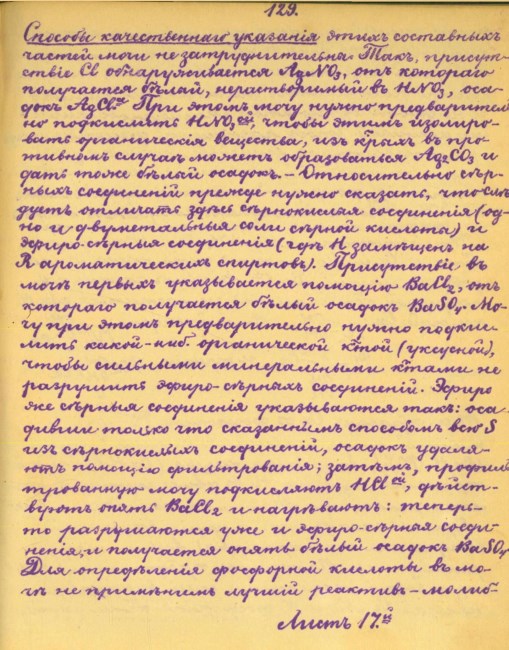 129.
Способы качественнаго указанія этихъ составныхъ
частей мочи не затруднительны. Такъ, присут-
ствіе Cl обнаруживается AgNO3, отъ котораго
получается бѣлый, нерастворимый въ HNO3, оса-
докъ AgCl. При этомъ мочу нужно предварител
но подкислить HNO3ой, чтобы этимъ изолиро-
вать органическія вещества, изъ к̃рыхъ въ про-
тивномъ случаѣ можетъ образоваться Ag2CO3 и
дать тоже бѣлый осадокъ. – Относительно сѣр-
ныхъ соединеній прежде нужно сказать, что слѣ
дуетъ отличать здѣсь сѣрнокислыя соединенія (од-
но и двуметальныя соли сѣрной кислоты) и
эфиро-сѣрныя соединенія (гдѣ H замѣщенъ на
R ароматическихъ спиртовъ). Присутствіе въ
мочѣ первыхъ указывается помощію BaCl2, отъ
котораго получается бѣлый осадокъ BaSO4. Мо-
чу при этомъ предварительно нужно подкис-
лить какой-ниб. органической к̃той (уксусной),
чтобы сильными минеральными к̃тами не
разрушить эфиро-сѣрныхъ соединеній. Эфиро
же сѣрныя соединенія указываются такъ: оса-
дивши только что сказаннымъ способомъ всю S
изъ сѣрнокислыхъ соединеній, осадокъ удаля-
ютъ помощію фильтрованія; затѣмъ, профил
трованную мочу подкисляютъ HClой, дѣйст-
вуютъ опять BaCl2 и нагрѣваютъ: теперь-
то разрушаются уже и эфиро-сѣрныя соеди-
ненія, и получается опять бѣлый осадокъ BaSO4.
Для опредѣленія фосфорной кислоты въ мо-
чѣ не примѣнимъ лучшій реактивъ – молиб-
Листъ 17.й